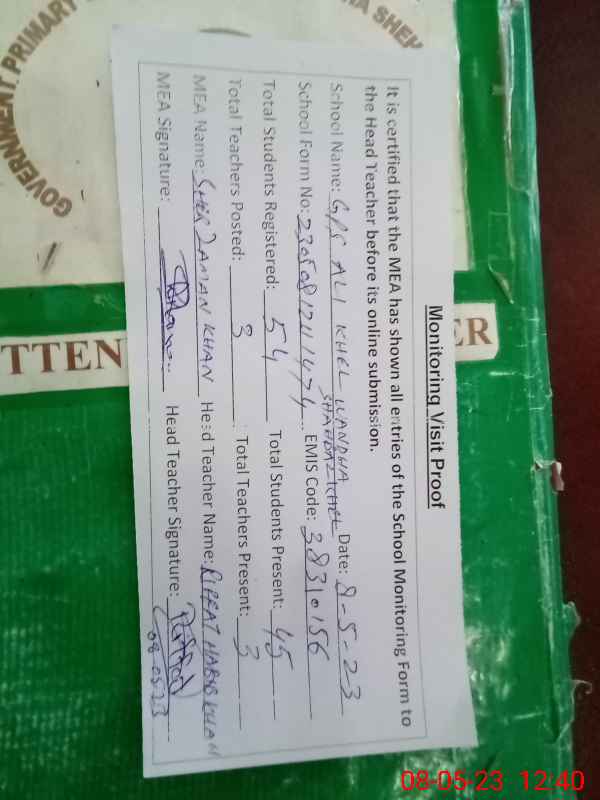 Monitoring Visit Proof
It is certified that the MEA has shown all entries of the School Monitoring Form to
the Head Teacher before its online submission.
School Name: GPS ALI KHEL WANDHA Date: 8-5-23
School Form No: EMIS Code: 38310156
Total Students Registered: 54 Total Students Present: 45
Total Teachers Posted: 3 Total Teachers Present: 3
MEA Name: SHER ZAMAN KHAN Head Teacher Name: HABIB KHAN
MEA Signature: Head Teacher Signature:
08-05-23
GOVERNMENT PRIMARY
TTEN
ER
08-05-23 12:40